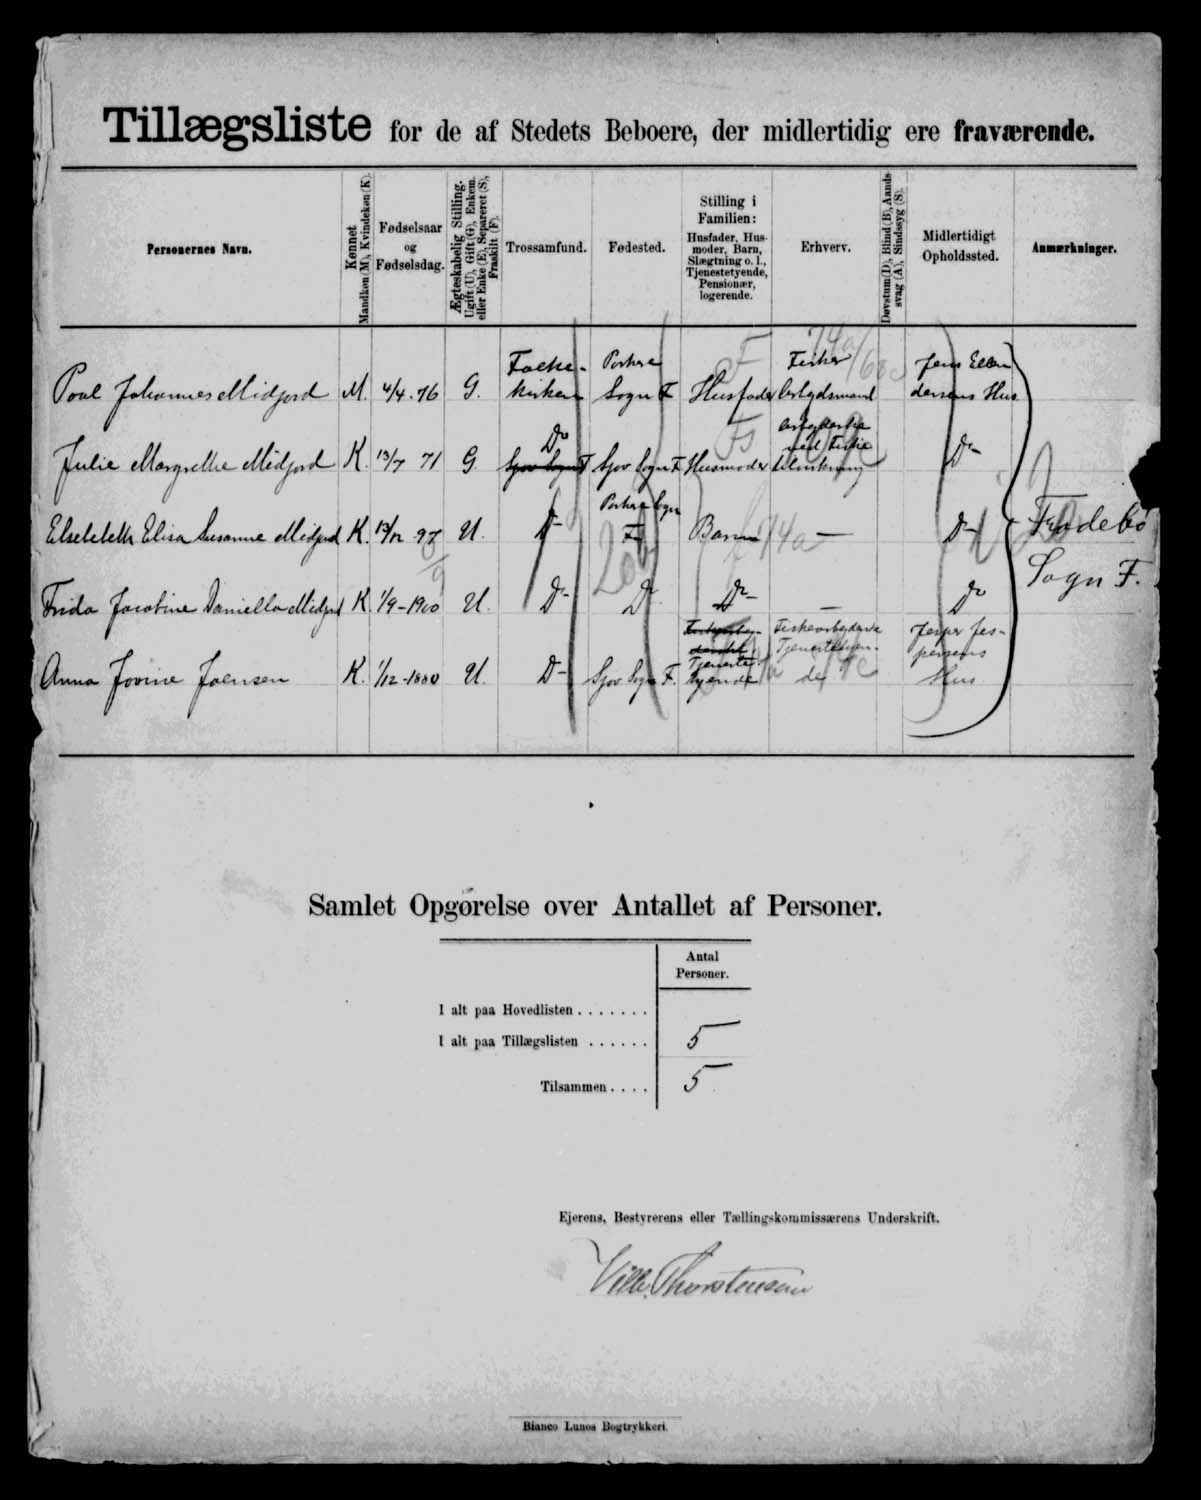 Tillægsliste for de af Stedets Beboere, der midlertidig ere fraværende.
Personernes Navn.
Kønnet
Mandkøn (M), Kvindekøn (K).
Fødselsaar
og
Fødselsdag.
Ægteskabelig Stilling.
Ugift (U), Gift (G), Enkem.
eller Enke (E), Separeret (S),
Fraskilt (F).
Trossamfund.
Fødested.
Stilling i
Familien:
Husfader, Hus-
moder, Barn,
Slægtning o. l.,
Tjenestetyende,
Pensionær,
logerende.
Erhverv.
Døvstum (D), Blind (B), Aands-
svag (A), Sindssyg (S).
Midlertidigt
Opholdssted.
Anmærkninger.
Poul Johannes Midjord M. 4/4. 76 G. Folke-
kirken Porkere
Sogn F Husfader Fisker
Arbejdsmand Jens Ellen
dersens Hus
Julie Margrethe Midjord K. 13/7 71 G. Do
Sjov Sogn F Sjov Sogn F. Husmoder
ved Fiske
tilvirkning Do
Elsebeth Elisa Susanne Midjord K. 13/12 97 U. Do Porkere Sogn
F Barn — Do
Frodebø
Sogn F.
Frida Jacobine Daniella Midjord K. 1/9-1900 U. Do Do Do — Do
Anna Jovine Joensen K. 1/12-1880 U. Do Sjov Sogn F. Tjeneste-
tyende Fiskearbejderske
Tjenestetyen-
de Jesper Jes-
persens
Hus
Samlet Opgørelse over Antallet af Personer.
Antal
Personer.
I alt paa Hovedlisten . . . . . . .
I alt paa Tillægslisten . . . . . . 5
Tilsammen . . . . 5
Ejerens, Bestyrerens eller Tællingskommissærens Underskrift.
Vilh. Thorsteinson
Bianco Lunos Bogtrykkeri.